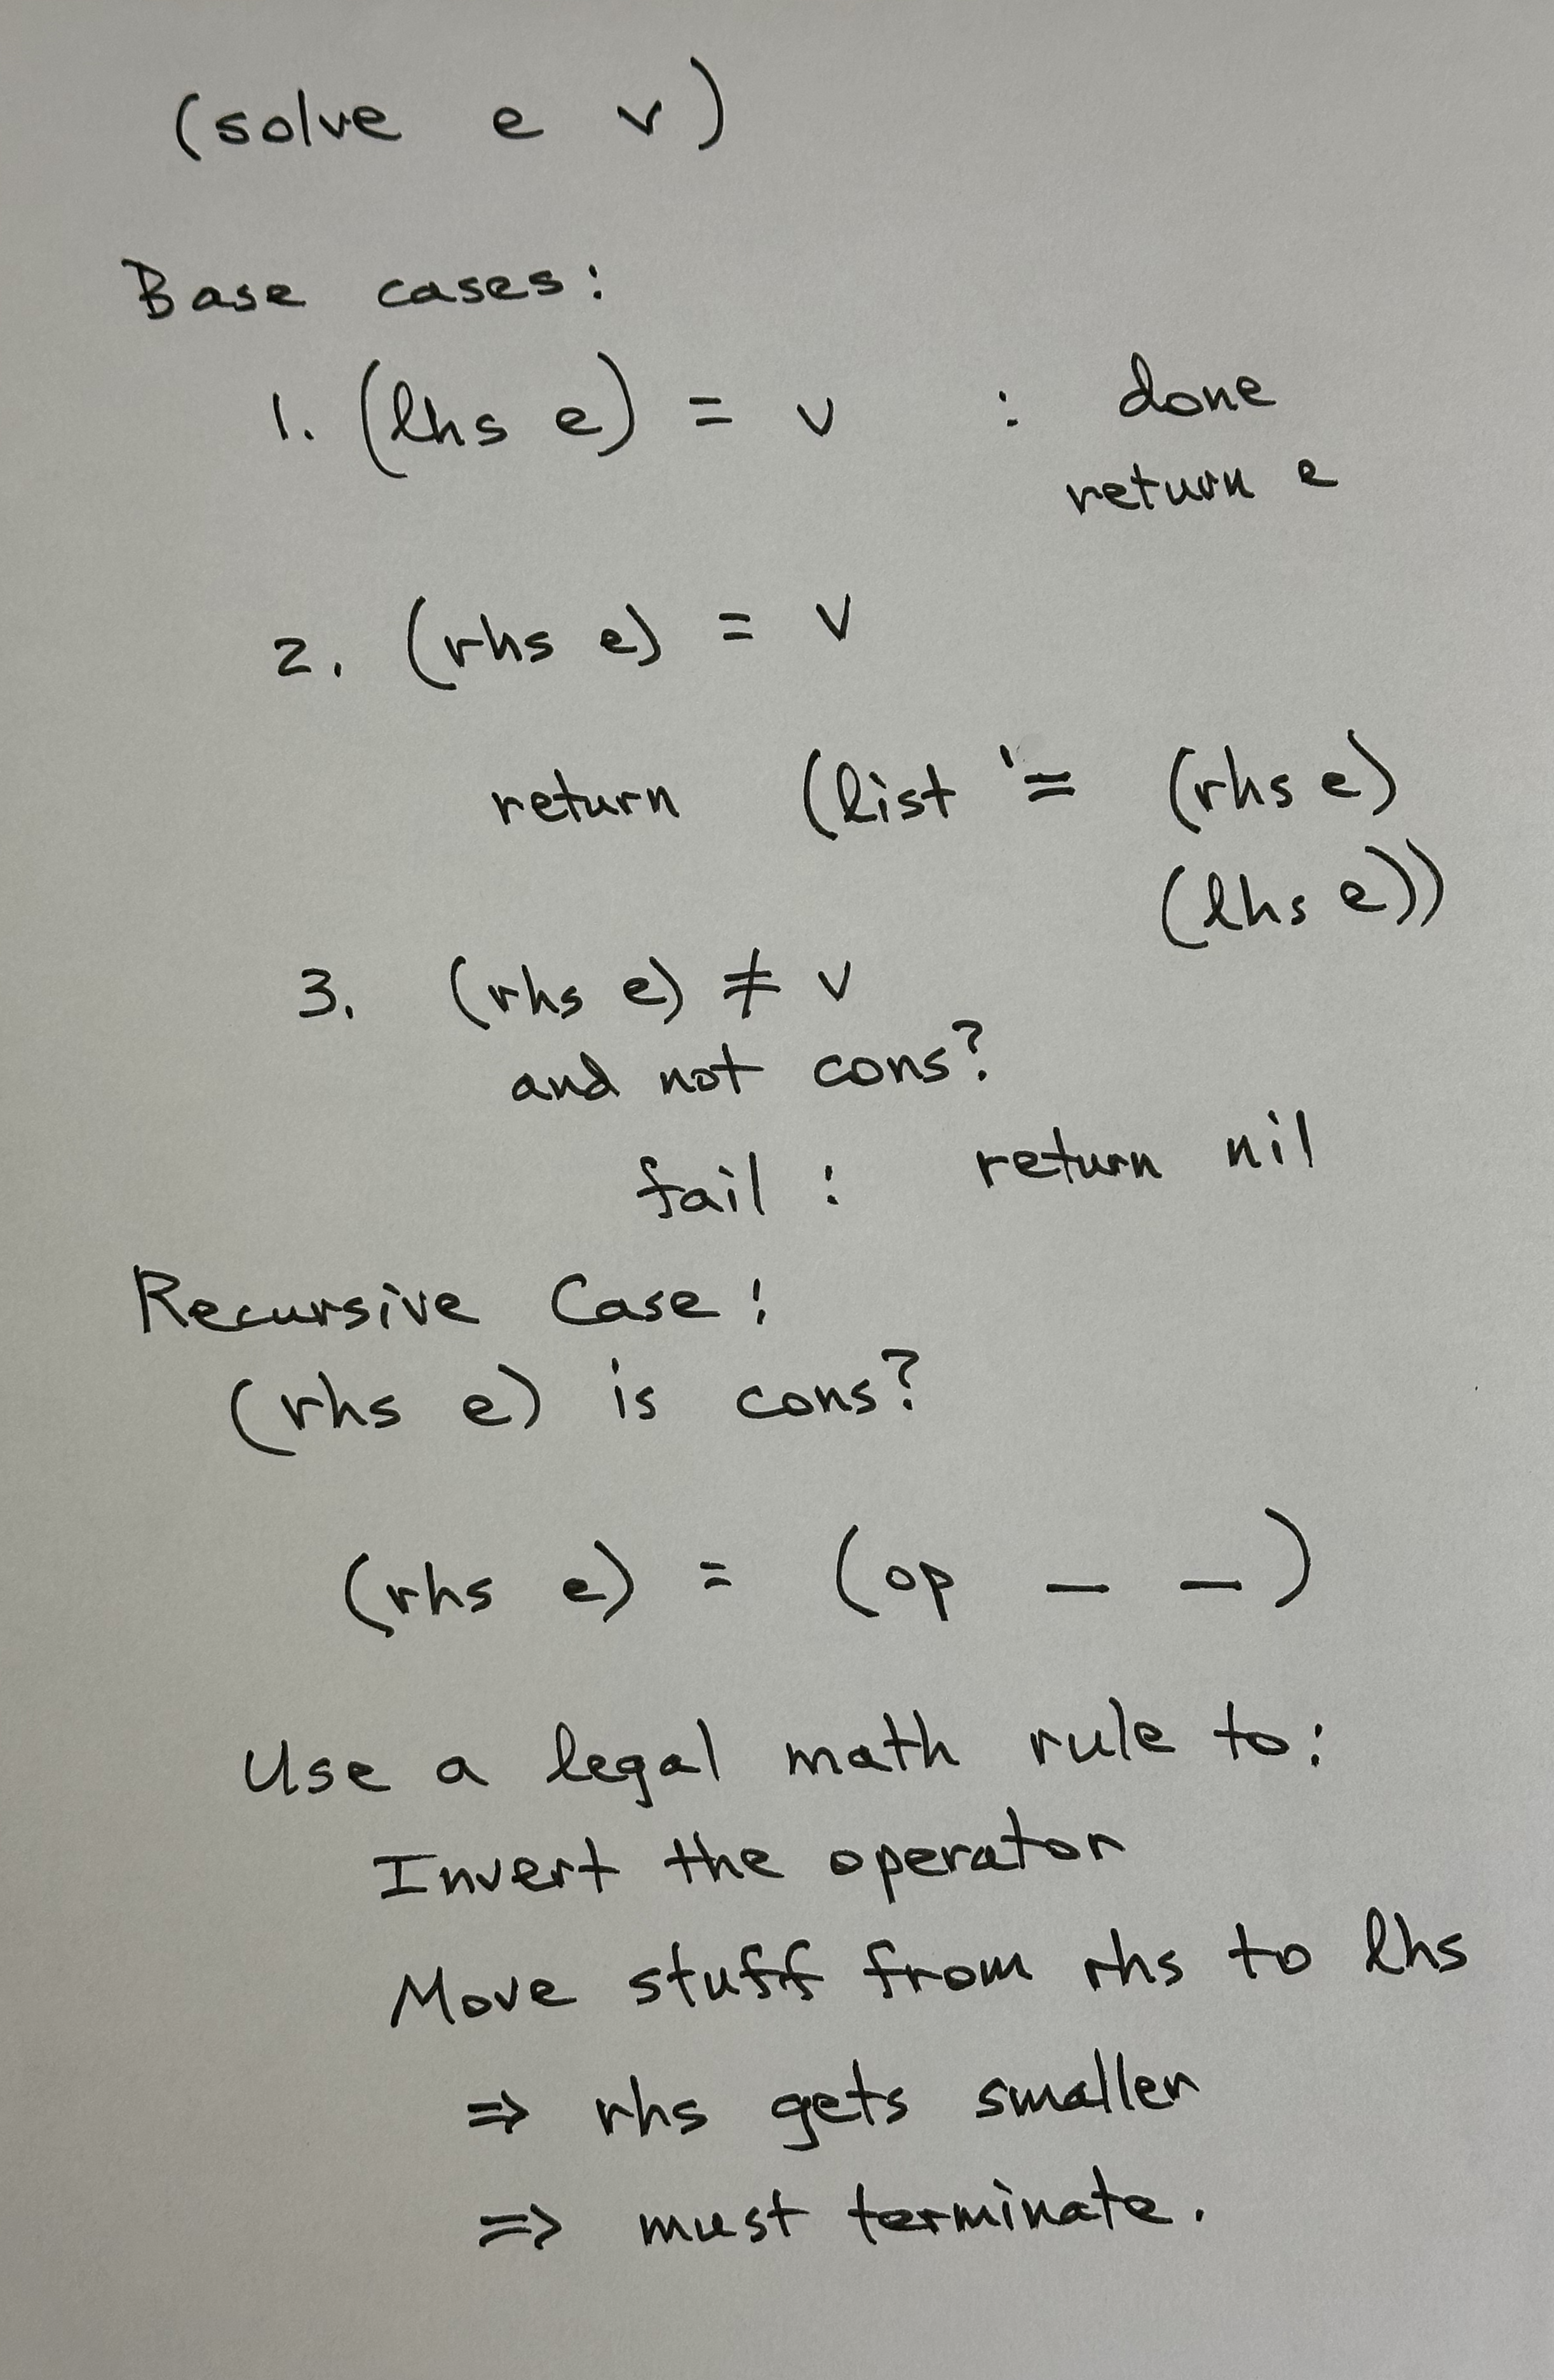 (solve e v)
Base cases:
1. (lhs e) = v : done
return e
2. (rhs e) = v
return (list '= (rhs e)
(lhs e))
3. (rhs e) ≠ v
and not cons?
fail : return nil
Recursive Case:
(rhs e) is cons?
(rhs e) = (op _ _)
Use a legal math rule to:
Invert the operator
Move stuff from rhs to lhs
⇒ rhs gets smaller
⇒ must terminate.